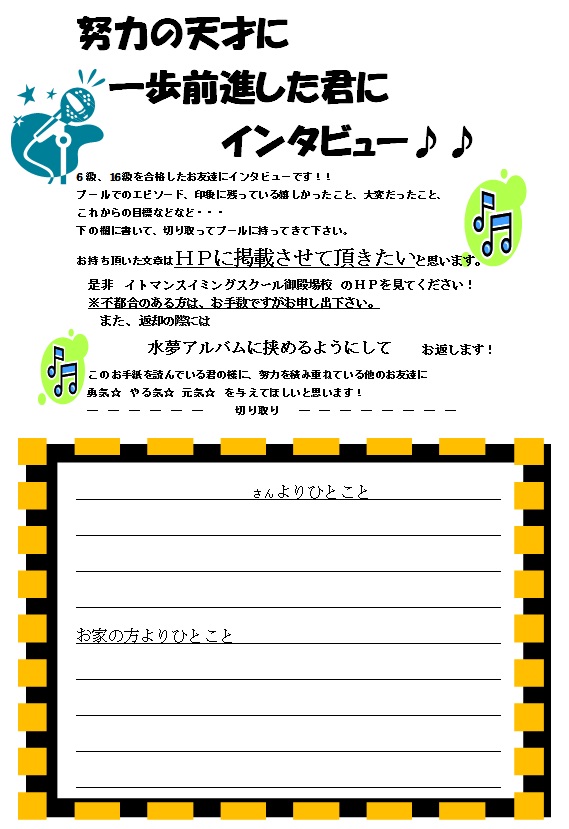 努力の天才に
一歩前進した君に
インタビュー♪♪
６級、16級を合格したお友達にインタビューです！！
プールでのエピソード、印象に残っている嬉しかったこと、大変だったこと、
これからの目標などなど・・・
下の欄に書いて、切り取ってプールに持ってきて下さい。
お持ち頂いた文章はＨＰに掲載させて頂きたいと思います。
是非　イトマンスイミングスクール御殿場校　のＨＰを見てください！
※不都合のある方は、お手数ですがお申し出下さい。
また、返却の際には
水夢アルバムに挟めるようにして　　お返します！
このお手紙を読んでいる君の様に、努力を積み重ねている他のお友達に
勇気☆　やる気☆　元気☆　を与えてほしいと思います！
－－－－－－　切り取り　－－－－－－－－
さんよりひとこと
お家の方よりひとこと